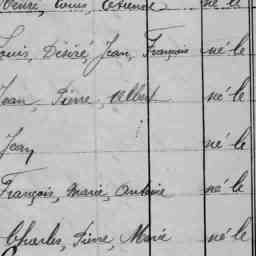 Louis, Etienne né le
Louis, Désiré, Jean, François né le
Jean, Pierre, Albert né le
Jean né le
François, Marie, Antoine né le
Charles, Pierre, Marie né le